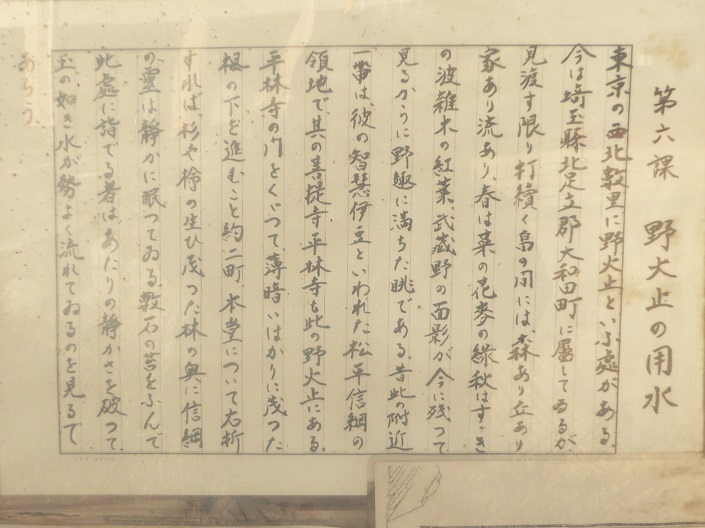 第六課　野火止の用水
東京の西北数里に野火止といふ處がある。
今は埼玉縣北足立郡大和田町に屬してゐるが、
見渡す限り打續く畠の間には、森あり丘あり
家あり流あり、春は菜の花麥の緑秋はすゝき
の波雜木の紅葉、武蔵野の面影が今に残つて
見るからに野趣に満ちた眺である。昔此の附近
一帯は、彼の智慧伊豆といわれた松平信綱の
領地で、其の菩提寺平林寺も此の野火止にある。
平林寺の門をくゞつて、薄暗いばかりに茂つた
根の下を進むこと約二町、本堂について右折
すれば、杉や檜の生ひ茂つた林の奥に信綱
の靈は静かに眠つてゐる。敷石の苔をふんで
此處に詣でる者は、あたりの静かさを破つて、
玉の如き水が勢よく流れてゐるのを見るで
あらう。